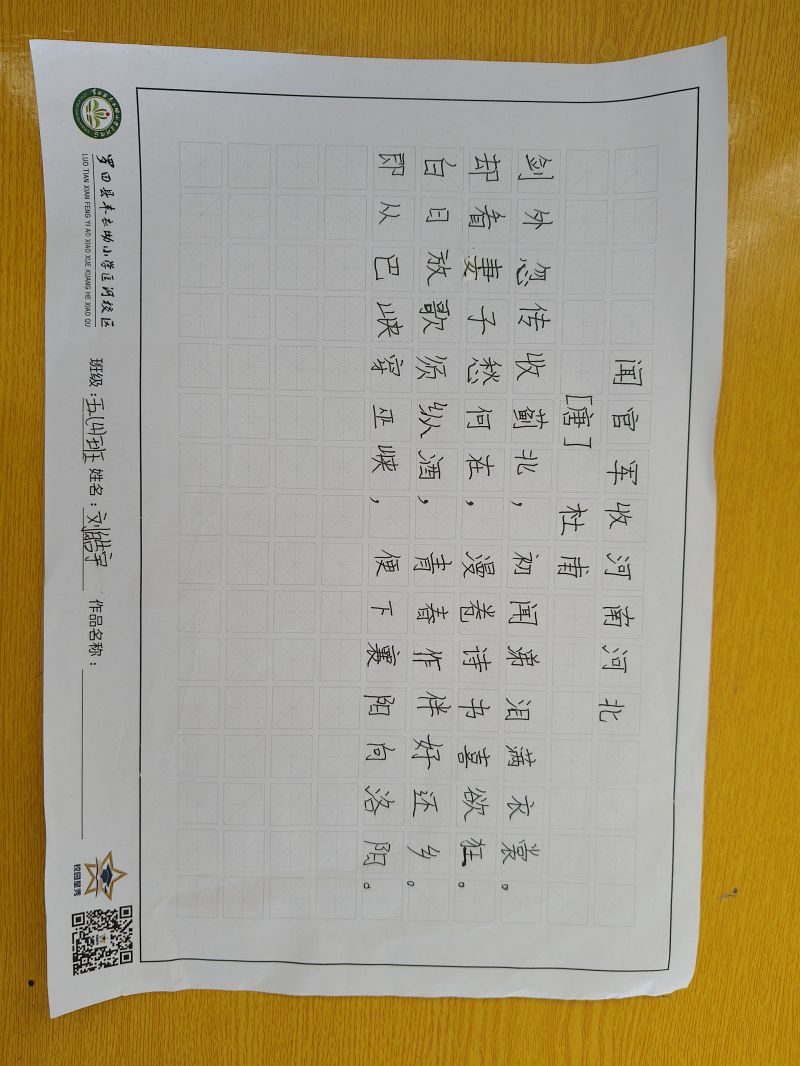 闻官军收河南河北
[唐] 杜甫
剑外忽传收蓟北，初闻涕泪满衣裳。
却看妻子愁何在，漫卷诗书喜欲狂。
白日放歌须纵酒，青春作伴好还乡。
即从巴峡穿巫峡，便下襄阳向洛阳。
罗田县丰衣坳小学匡河校区
LUO TIAN XIAN FENG YI AO XIAO XUE KUANG HE XIAO QU
班级：五(4)班 姓名：刘皓宇 作品名称：
校园星秀